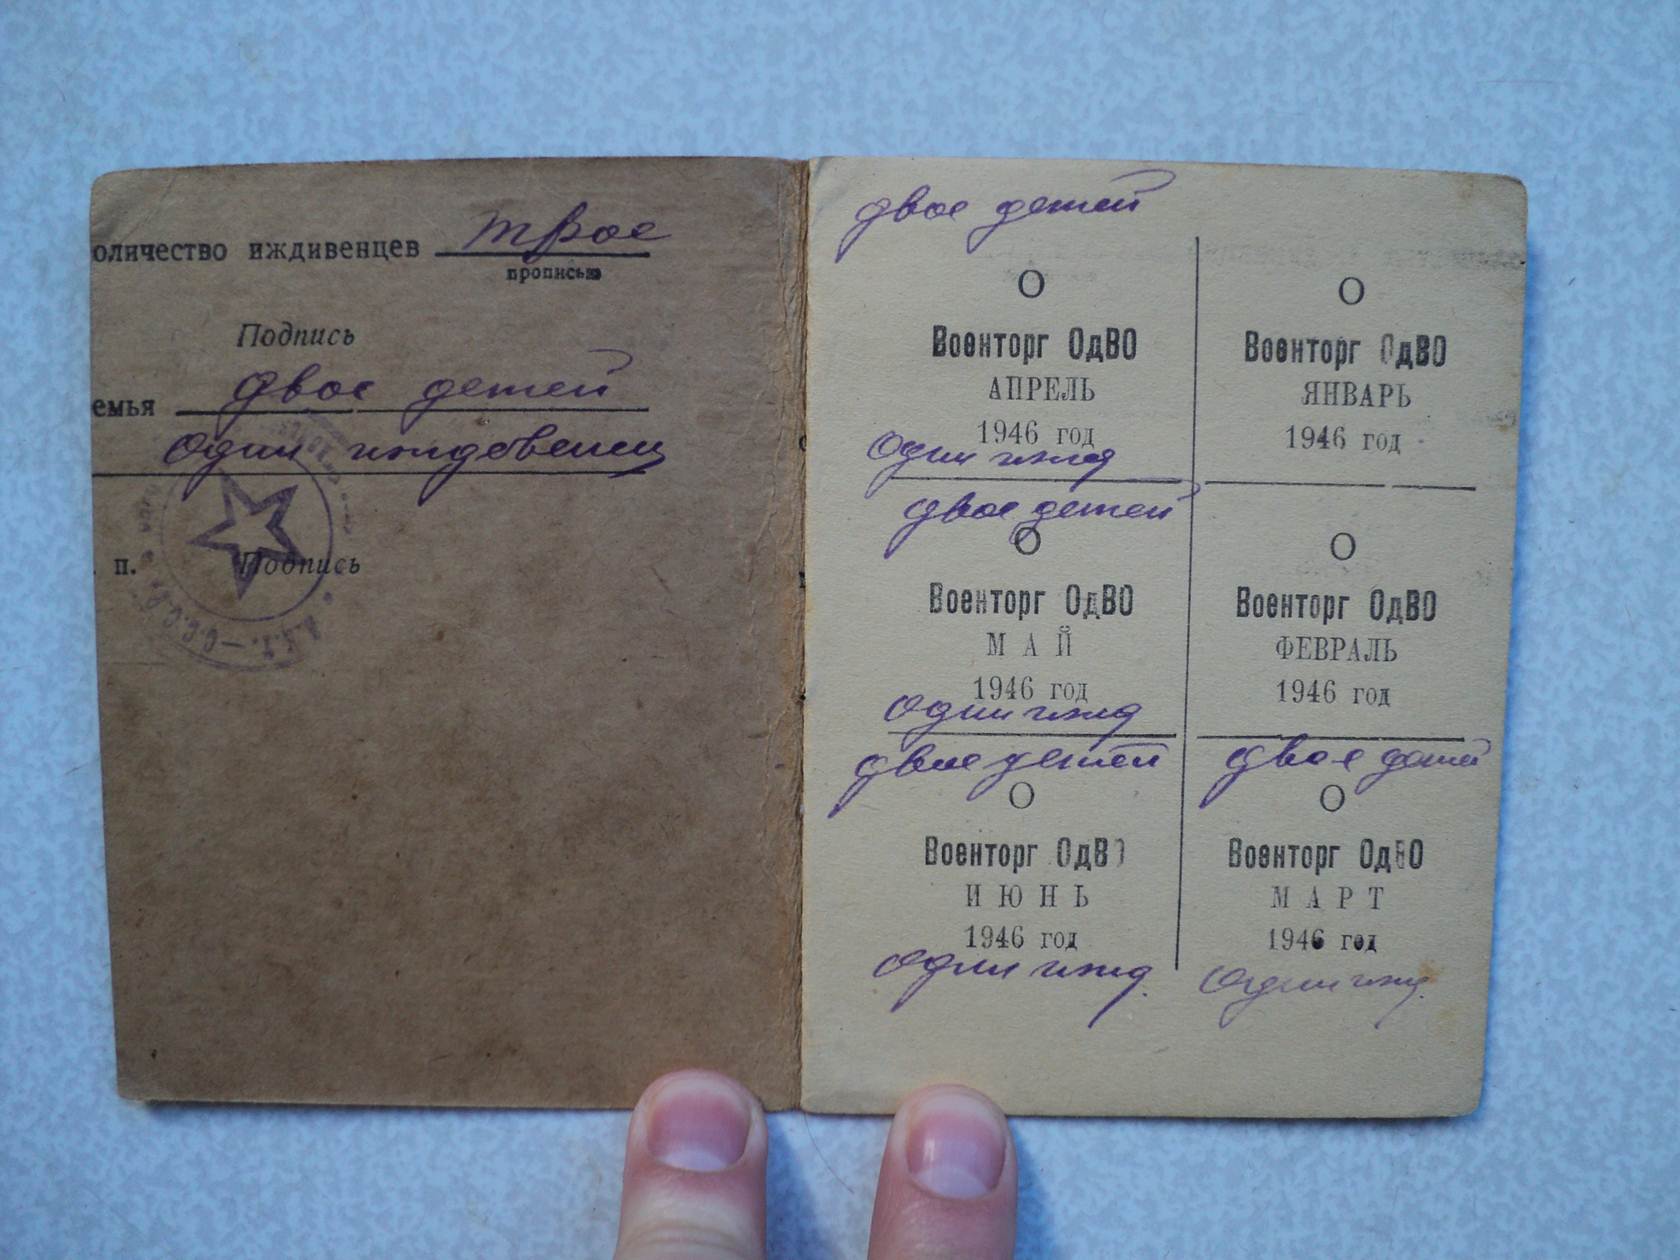 оличество иждивенцев трое
прописью
Подпись
емья двое детей
один иждевенец
п. Подпись
двое детей
О
Военторг ОдВО
АПРЕЛЬ
1946 год
один ижд
О
Военторг ОдВО
ЯНВАРЬ
1946 год
двое детей
О
Военторг ОдВО
МАЙ
1946 год
один ижд
О
Военторг ОдВО
ФЕВРАЛЬ
1946 год
двое детей
О
Военторг ОдВО
ИЮНЬ
1946 год
один ижд.
двое детей
О
Военторг ОдВО
МАРТ
1946 год
один ижд.